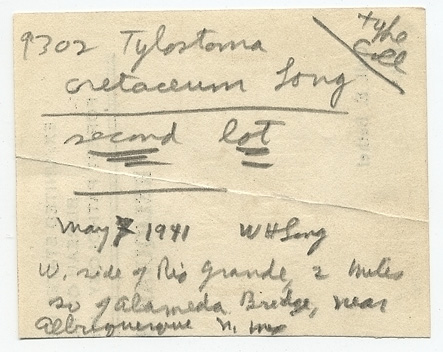 9302 Tylostoma
cretaceum Long
type
Coll
second lot
May 7 1941 WHLong
W. side of Rio Grande, 2 miles
so of Alameda Bridge, near
Albuquerque N. Mex